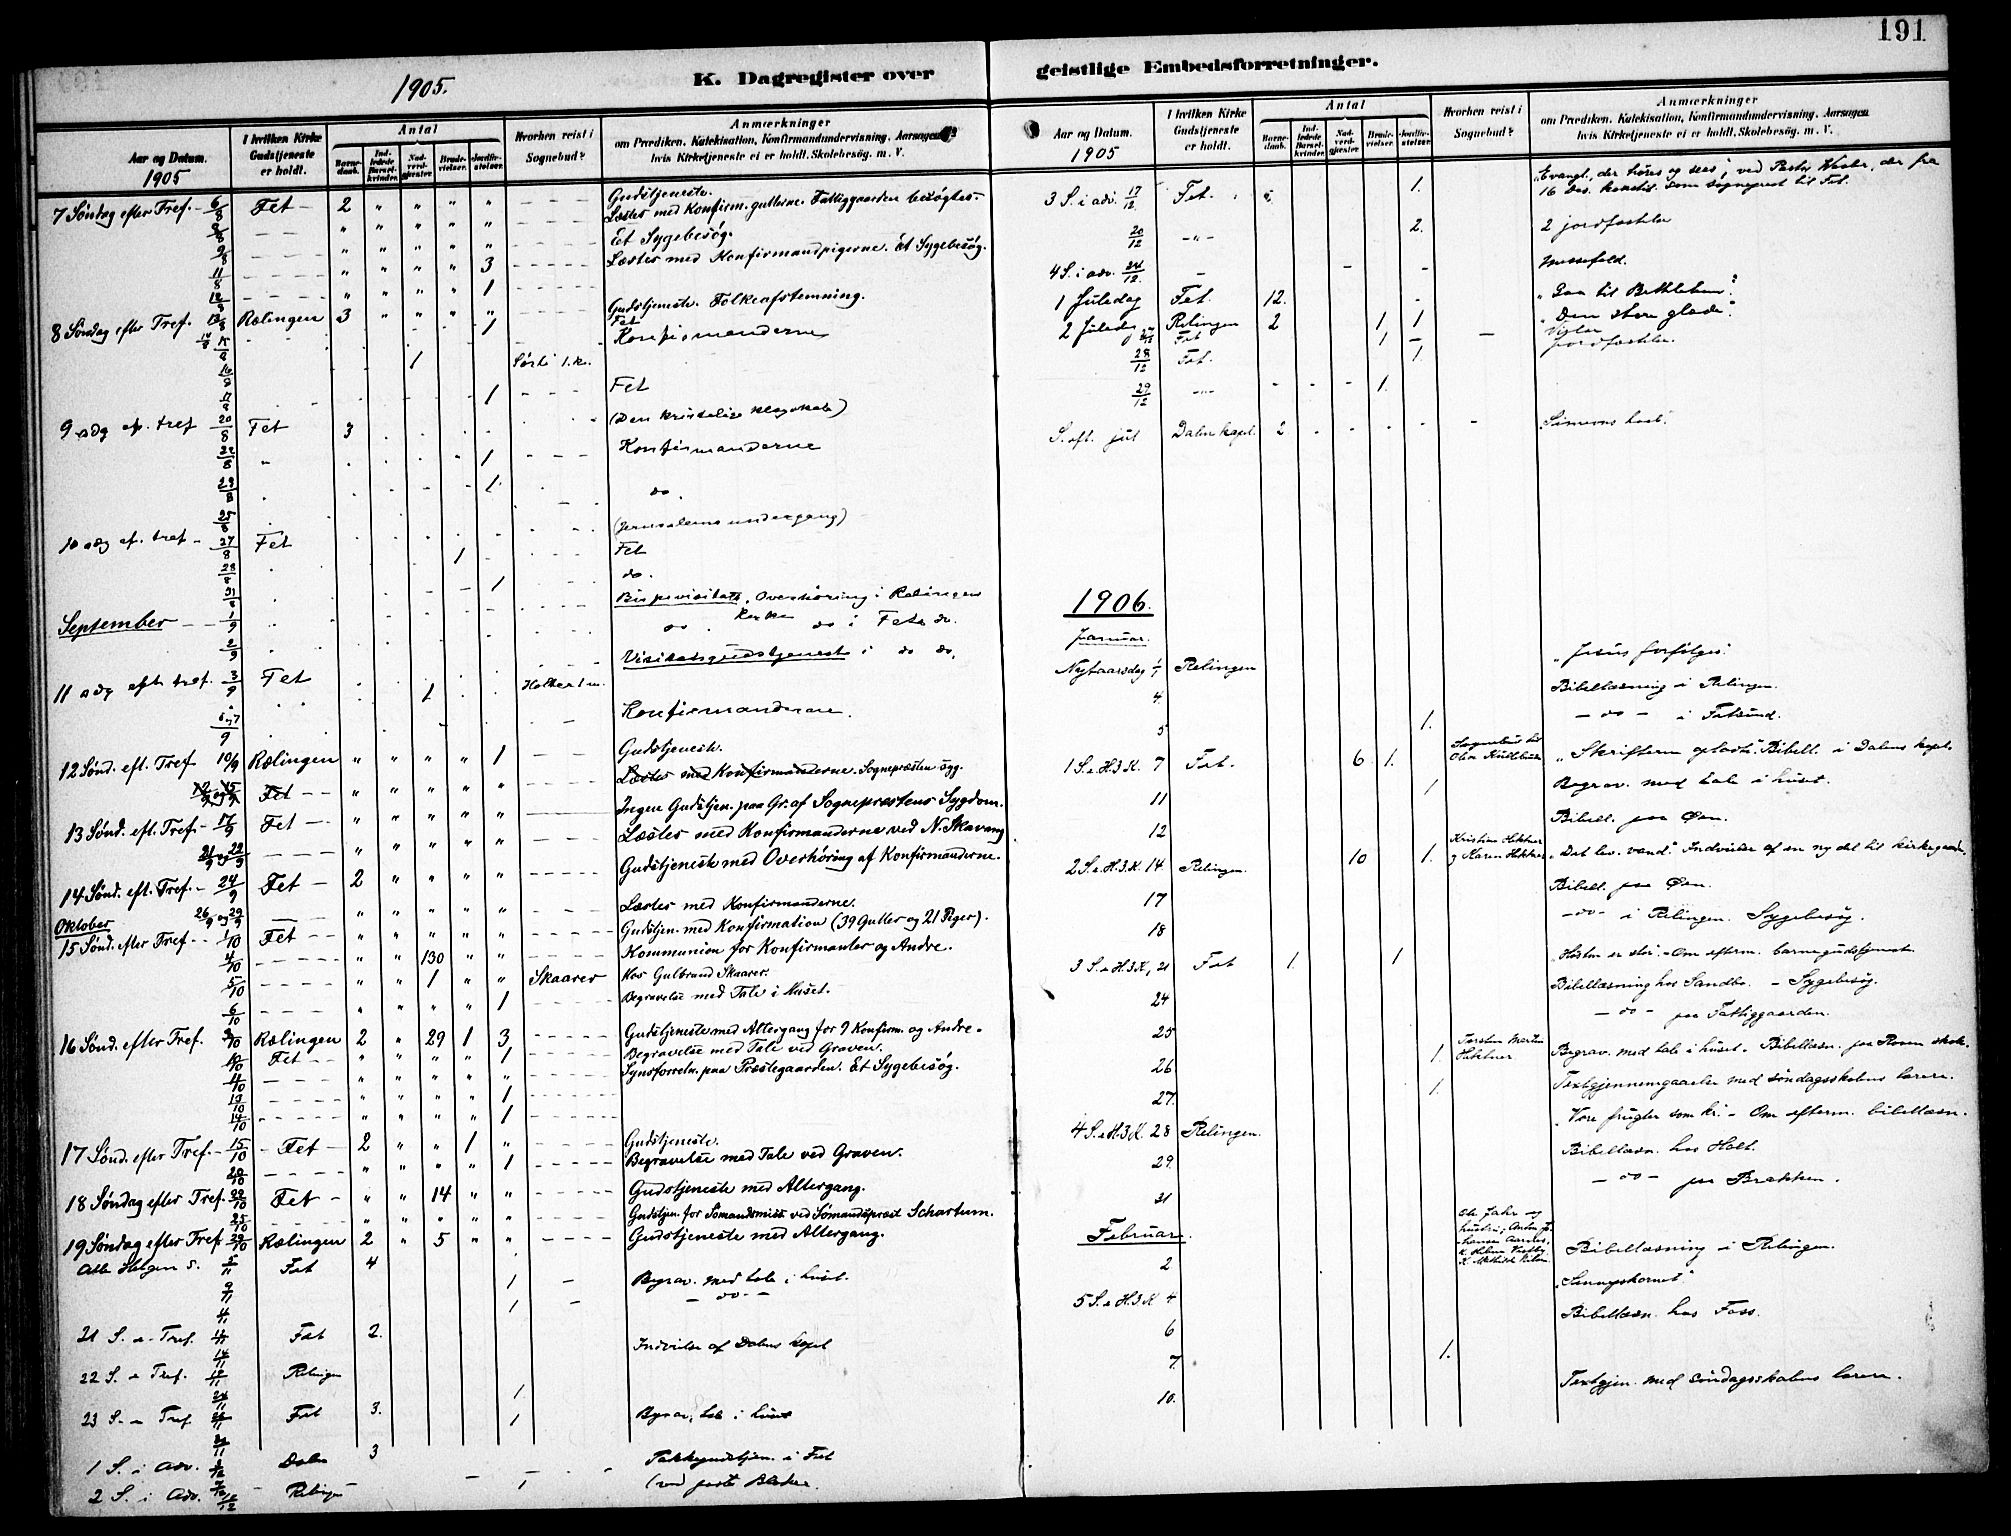 191
1905.
K. Dagregister over
geistlige Embedsforretninger.
Aar og Datum.
1905
I hvilken Kirke Gudstjeneste er holdt.
Antal
Barnedaab.
Indledede Barselkvinder.
Nadverdgjæster.
Brudevielser.
Jordfæstelser.
Hvorhen reist i Sognebud?
Anmærkninger
om Prædiken, Katekisation, Konfirmandundervisning, Aarsagen
hvis Kirketjeneste ei er holdt. Skolebesög. m. V.
7 Søndag efter Tref. 6/8 Fet 2 " " " " Gudstjeneste.
Læstes med Konfirm. gutterne. Fattiggaarden besøgtes.
9/8 " " " " " Et Sygebesøg.
11/8 " " " " 3 Læstes med Konfirmandpigerne. Et Sygebesøg.
12/8 " " " " 1
8 Søndag efter Tref. 13/8 Rælingen 3 " " " " Gudstjeneste. Folkeafstemning.
1 Fet
Konfirmanderne
1
17/8 1 Fet
9 sdg ef. tref 20/8 Fet 3 (Den kristelige )
22/8 " 1 Konfirmanderne
23/8 1 do.
25/8
10 sdg ef. tref 27/8 Fet (Jerusalems undergang)
28/8 1 Fet
31/8 1 do.
September 1/9 Bispevisitats. Overhøring i Relingen Kirke
2/9 do. do i Fets do.
11 sdg eft tref. 3/9 Fet Visitatsgudstjeneste i do do.
1
Konfirmanderne.
12 Sønd. eft. Tref 10/9 Rælingen " " " " 1 Gudstjeneste.
Fet " " " " " Læstes med Konfirmanderne. Sognepræsten syg.
13 Sønd. eft. Tref. 17/9 Fet " " " " " Ingen Gudstjen. paa Gr. af Sognepræstens Sygdom.
21/9 og 22/9 " " " " " Læstes med Konfirmanderne ved N. Skavang
14 Sønd. eft. Tref. 24/9 Fet 2 " " " " Gudstjeneste med Overhøring af Konfirmanderne.
Oktober 26/9 og 29/9 " " " " " Læstes med Konfirmanderne.
15 Sønd. efter Tref. 1/10 Fet " " " " " Gudstjen. med Konfirmation (39 Gutter og 21 Piger).
4/10 " " 130 " " Kommunion for Konfirmanter og Andre.
5/10 " " 1 " " Skaarer Hos Gulbrand Skaarer.
6/10 " " " " 1 Begravelse med Tale i Huset.
16 Sønd. efter Tref. 8/10 Rælingen 2 " 29 1 3 Gudstjeneste med Altergang for 9 Konfirm. og Andre.
10/10 Fet " " " " 1 Begravelse med Tale ved Graven.
11/10 " " " " " Synsforretn. paa Præstegaarden. Et Sygebesøg.
13/10 " " " " 1
14/10 " " " " 1
17 Sønd. efter Tref. 15/10 Fet 2 " " 1 " Gudstjeneste.
20/10 " " " " 1 Begravelse med Tale ved Graven.
18 Søndag efter Tref. 22/10 Fet " " 14 " " Gudstjeneste med Altergang.
25/10 " " " " " Gudstjen. for Sømandsmiss. ved Sømandspræst Schartum.
19 Søndag efter Tref. 29/10 Rælingen 2 " 5 " " Gudstjeneste med Altergang.
Alle Helgen s. 5/11 Fet 4
9/11 1 Begrav. med tale i huset.
1 - do -
21 S. e. Tref. Fet 2.
14/11 Indvielse af Dalens kapel
22 S. e. Tref. 19/11 Relingen
24/11 1.
23 S. e. Tref 26/11 Fet 3. 1 Begrav. tale i huset
1 S. i Adv. Dalen 3 Takkegudstjen. i Fet
2 S. i Adv. Relingen 1
Aar og Datum.
1905
I hvilken Kirke Gudstjeneste er holdt.
Antal
Barnedaab.
Indledede Barselkvinder.
Nadverdgjæster.
Brudevielser.
Jordfæstelser.
Hvorhen reist i Sognebud?
Anmærkninger
om Prædiken, Katekisation, Konfirmandundervisning, Aarsagen
hvis Kirketjeneste ei er holdt. Skolebesög. m. V.
3 S. i adv. 17/12 Fet. 1. "Evangl., der høres og sees", ved Pastor , der fra
16 des. konstit. som sogneprest til Fet.
20/12 - " - 2. 2 jordfæstelser
4 S. i adv. 24/12 - Messefald.
1 Juledag Fet. 12. "Gaa til Bethlehem".
2 Juledag Relingen 2 1 1 "Den store glæde".
Fet 1 - Vielse
28/12 Fet. 1 jordfæstelse.
29/12 - " - 1.
S. eft. jul Dalen kapel. 2 "Simeons lod".
1906.
Januar.
Nytaarsdag 1/1 Relingen "Jesus forfølges".
4 Bibellæsning i Relingen.
5 1. - do - i Fetsund.
1 S. e. H.3.K. 7 Fet. 6 1. "Skriftern opladt". Bibell. i Dalens kapel
11 1 Begrav. med tale i huset.
12 Bibell. paa Øen.
2 S. e. H.3.K. 14. Relingen. 10 1. Kristian Hektner
og Karen Hektner "Det lev. vand." Indvielse af en ny del til kirkegaarden.
17 Bibell. paa Øen.
18 - do - i Relingen. Sygebesøg.
3 S. e. H.3.K, 21 Fet 1. 1 "Høsten er stor". - Om efterm. barnegudstjeneste.
24 Bibellæsning hos Sandbo. - Sygebesøg.
25 - do - paa Fattiggaarden.
26 1. Torsten Martin
Hektner Begrav. med tale i huset. Bibellæsn. paa Roven skole.
27. 1. Textgjennemgaaelse med søndagsskolens lærere.
4 S. e. H.3.K. 28 Relingen. "Vore frugter som kr." - Om efterm. bibellæsn.
29. Bibellæsn. hos Holt.
31 - do - paa Brækken.
Februar.
2 Bibellæsning i Relingen.
5 S. e. H.3.K 4 "Sennepskornet".
6 Bibellæsn. hos Foss.
7. 1.
10. Textgjen. med søndagsskolens lærere.